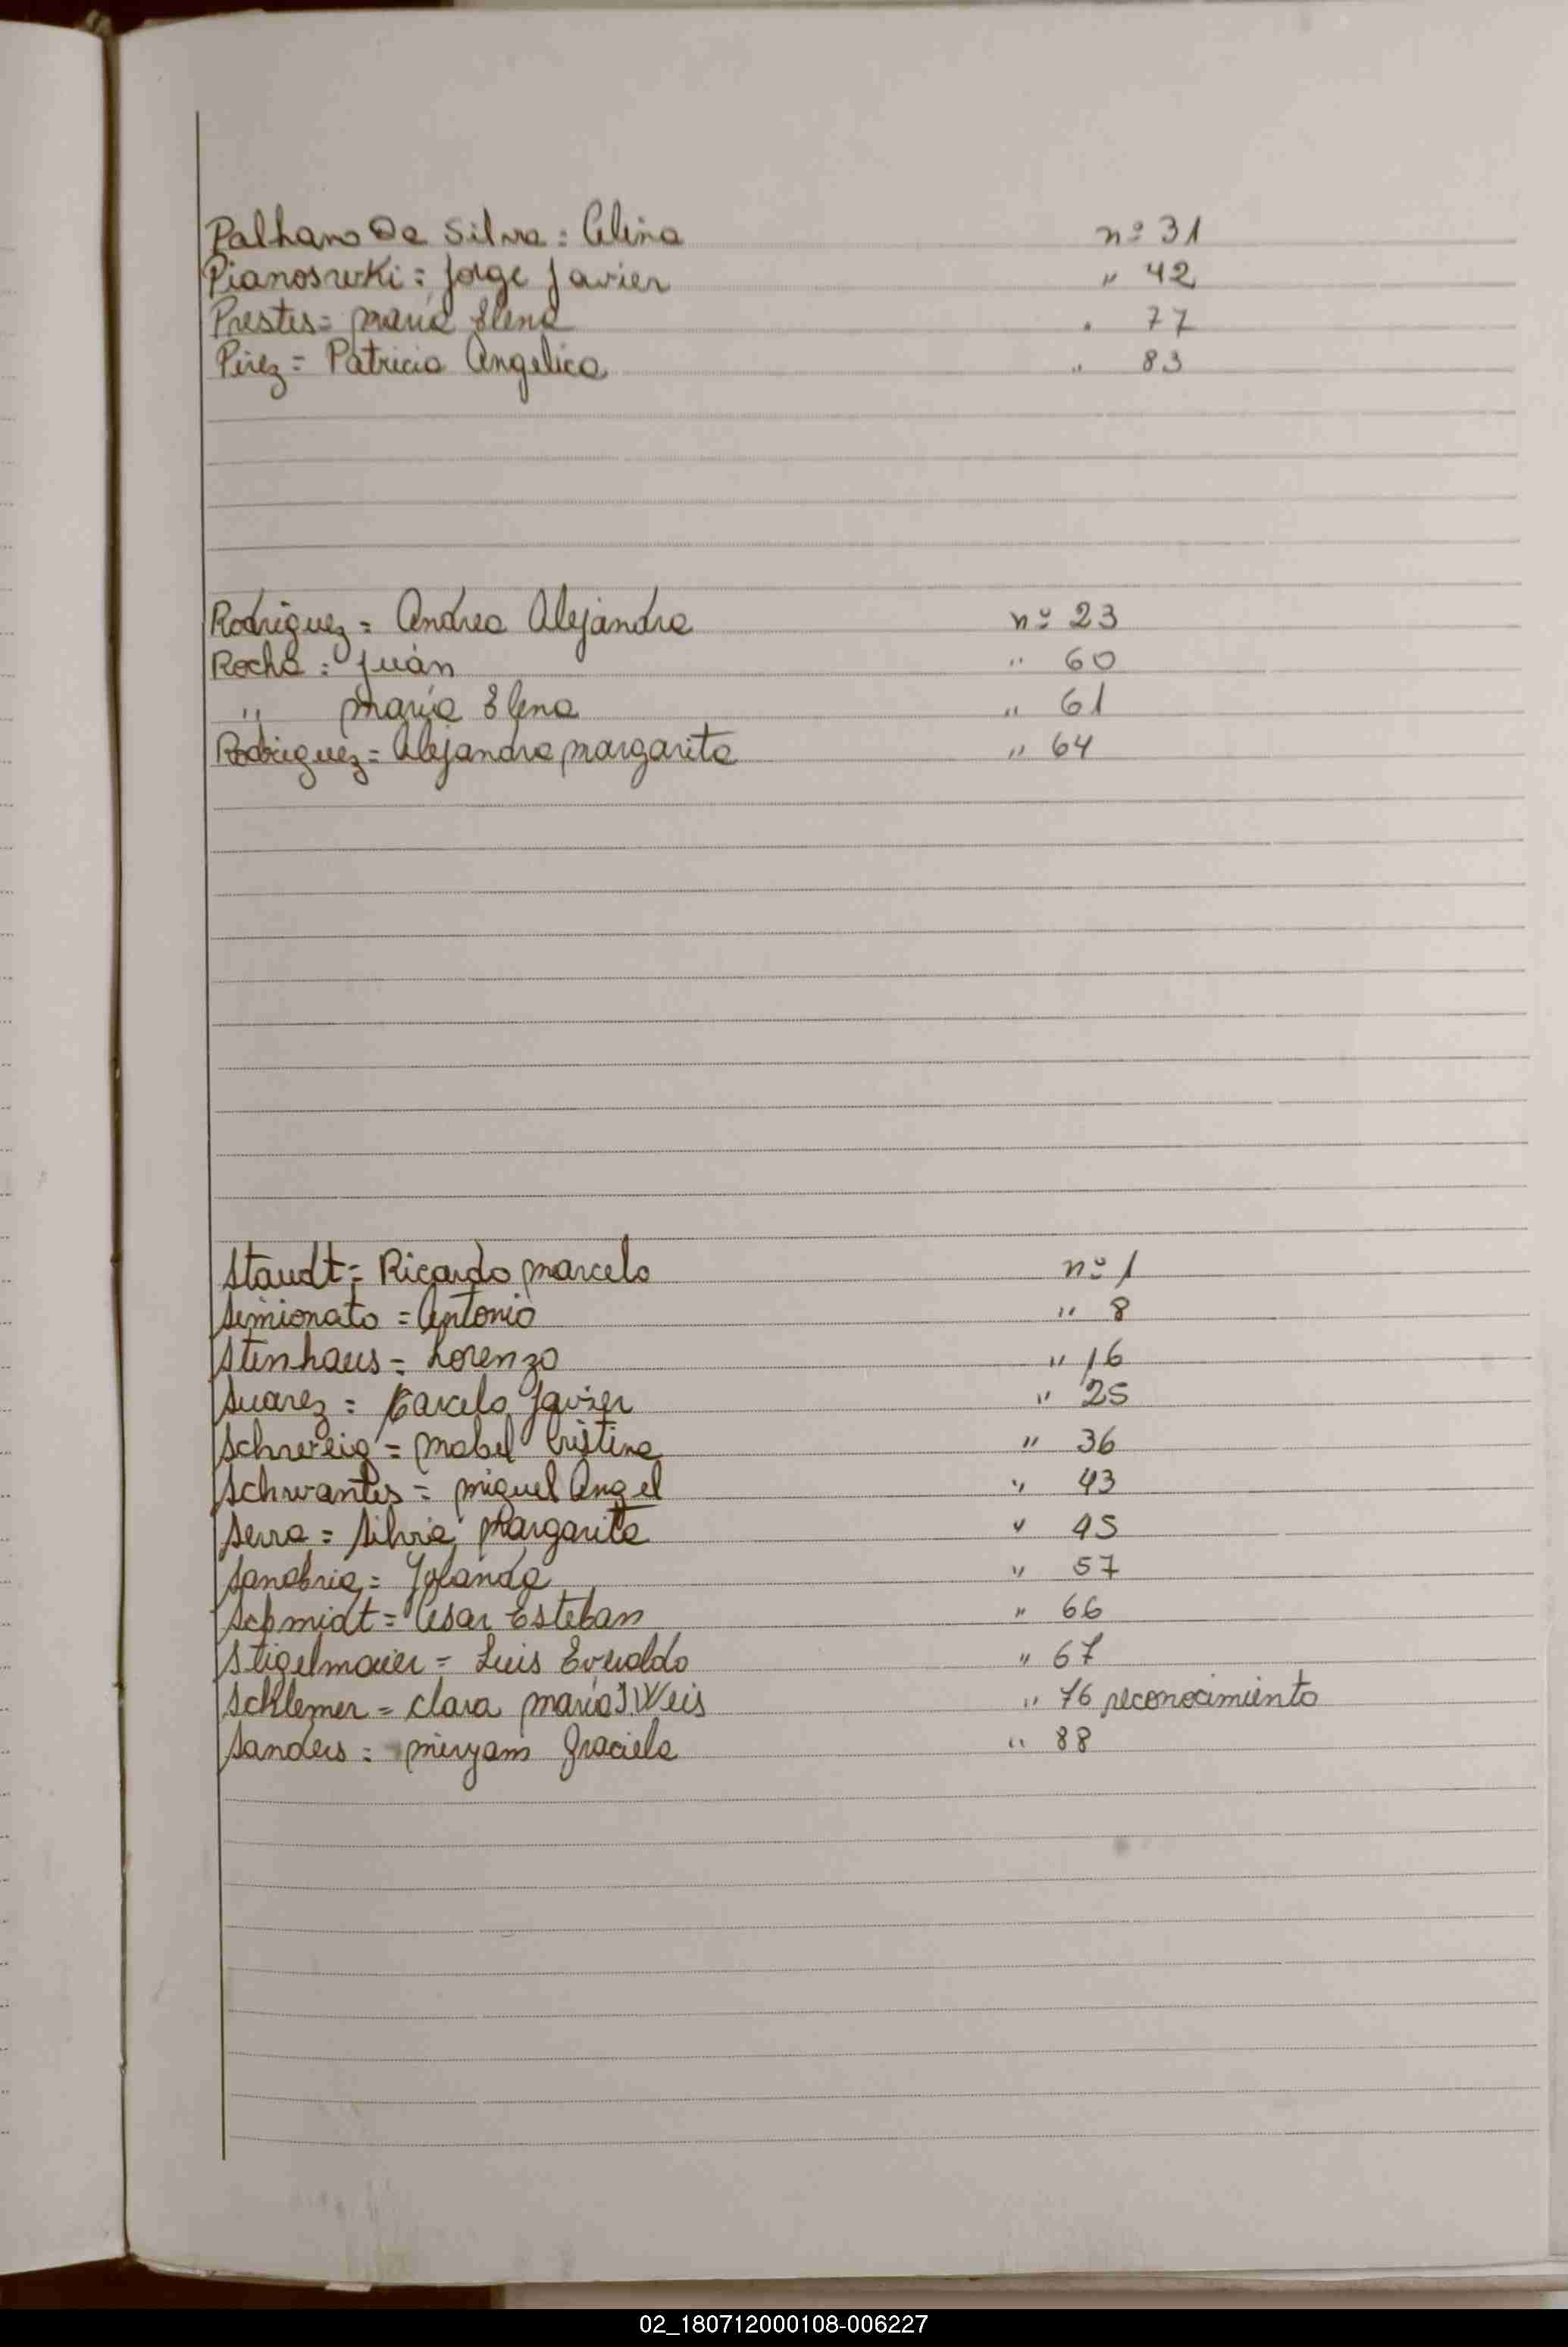 Palhano Da Silva = Celina nº 31
Pianoswki = Jorge Javier " 42
Prestes = maría Elena " 77
Pérez = Patricia Angelica " 83
Rodriguez = Andrea Alejandra nº 23
Rocha = Juán " 60
" maría Elena " 61
Rodriguez = Alejandra margarita " 64
Staudt = Ricardo marcelo nº 1
Simionato = Antonio " 8
Stinhaus = Lorenzo " 16
Suarez = Marcelo Javier " 25
Schweig = mabel Cristina " 36
Schwantes = miguel Angel " 43
Serra = Silvia Margarita " 45
Sanabria = Yolanda " 57
Schmidt = Cesar Esteban " 66
Stigelmaier = Luis Everaldo " 67
Schlemer = clara maría I. Weis " 76 reconocimiento
Sanders = miryam Graciela " 88
02_180712000108-006227